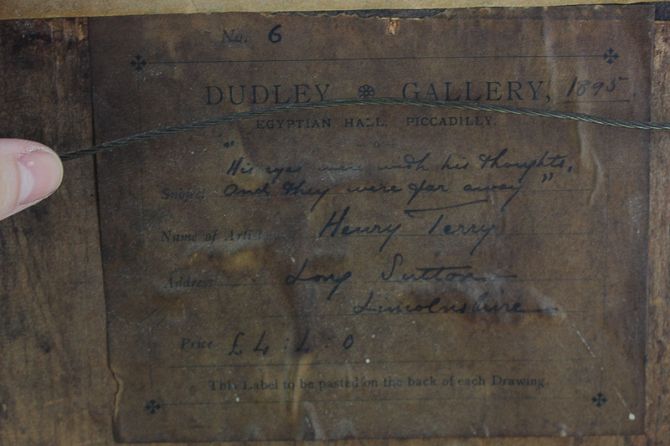 No. 6
DUDLEY GALLERY, 1895
EGYPTIAN HALL, PICCADILLY.
"His eyes were with his thoughts,
Subject And they were far away"
Name of Artist Henry Terry
Address Long Sutton
Lincolnshire
Price £4 : 4 : 0
This Label to be pasted on the back of each Drawing.